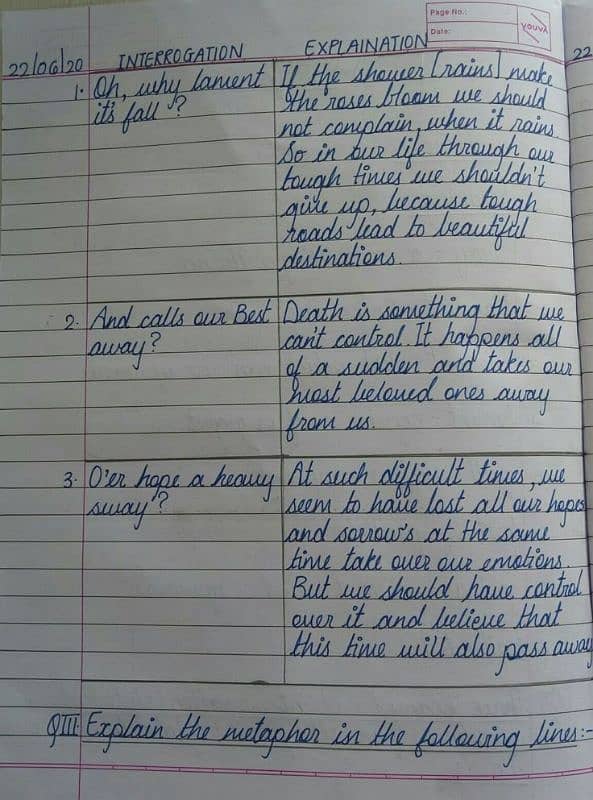 Page No.:
Date:
YOUVA
22/06/20 INTERROGATION EXPLAINATION
22
1. Oh, why lament
it's fall ?
If the shower [rains] make
the roses bloom we should
not complain, when it rains.
So in our life through our
tough times we shouldn't
give up, because tough
roads lead to beautiful
destinations.
2. And calls our Best
away?
Death is something that we
can't control. It happens all
of a sudden and takes our
most beloved ones away
from us.
3. O'er hope a heavy
sway ?
At such difficult times, we
seem to have lost all our hopes
and sorrow's at the same
time take over our emotions.
But we should have control
over it and believe that
this time will also pass away
QIII Explain the metaphor in the following lines :-